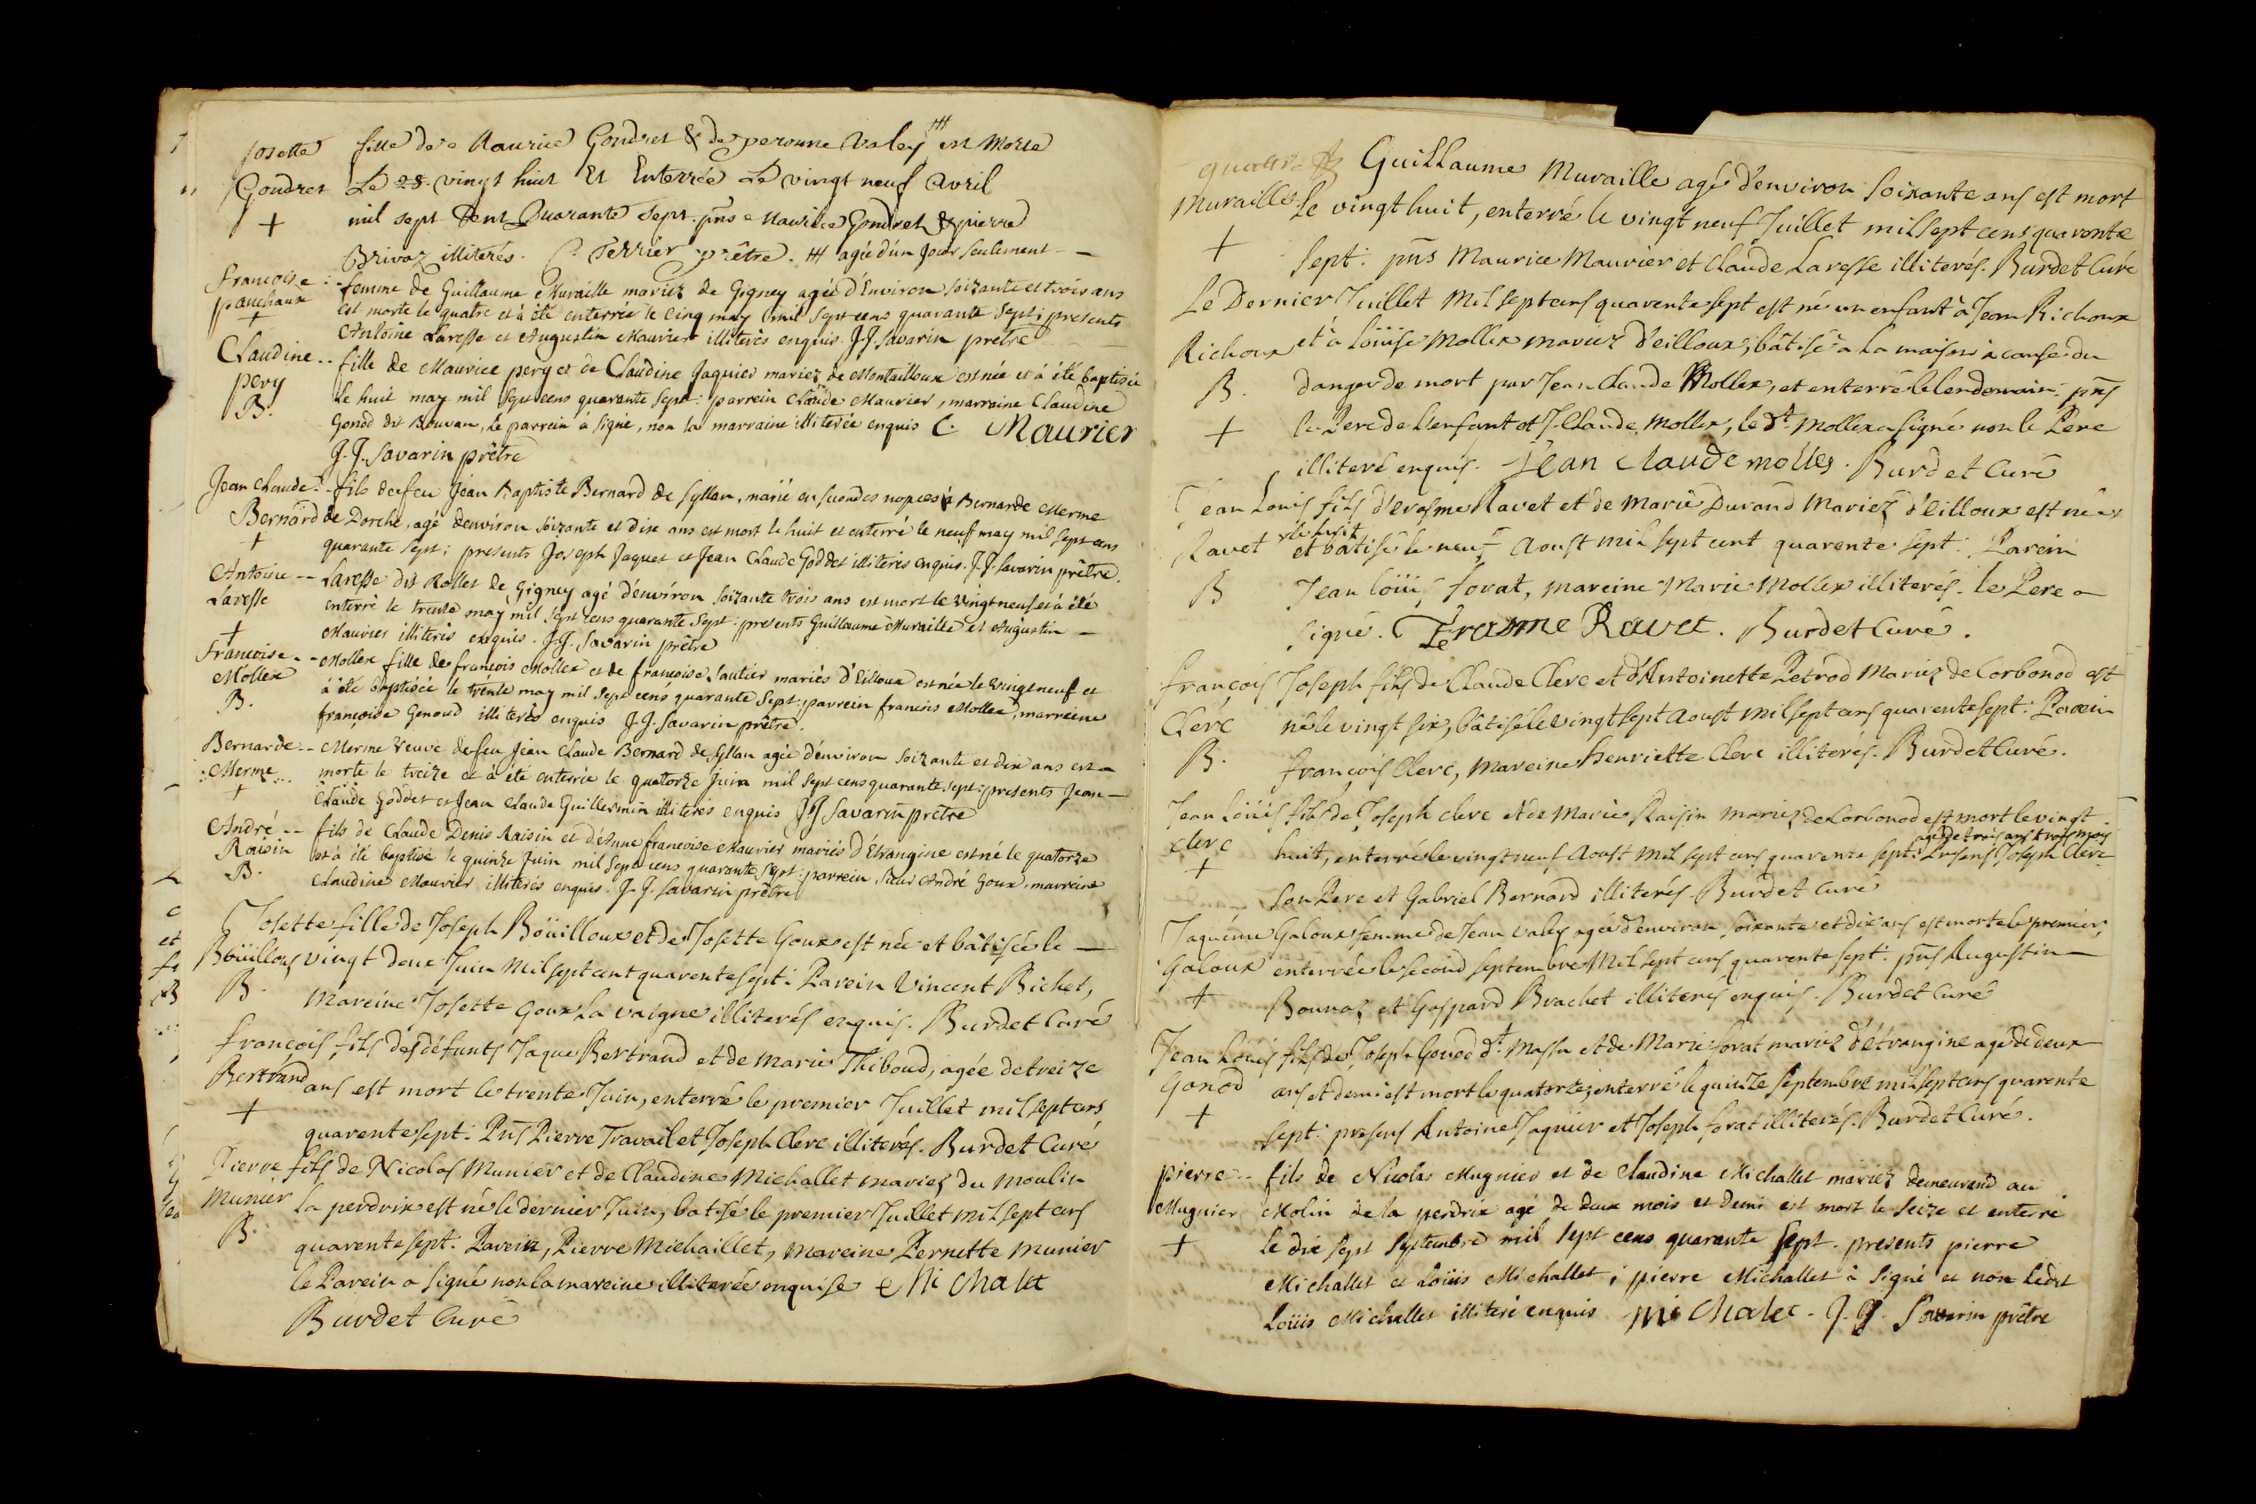 Josette fille de Maurice Gondret & de peronne Valey ## est Morte
Gondret Le 28. vingt huit Et Enterrée Le vingt neuf Avril
+ mil sept Cent Quarante Sept. pñs Maurice Gondret & pierre
Brivaz illiterés. Ferrier prêtre. ## agée d'un Jour Seulement
françoise femme de Guillaume Muraille mariez de Gigney agée d'Environ soixante et trois ans
panchaux est morte le quatre et à été enterrée le cinq may mil sept cens quarante sept; presents
+ Antoine Laresse et Augustin Maurier illiterés enquis. J.J. Savarin prêtre
Claudine -- fille de Maurice pery et de Claudine Jaquier mariez de Montailloux est née et à été baptisée
pery le huit may mil sept cens quarante sept: parrein Claude Maurier, marraine Claudine
B. Gonod dit Bouvan, le parrein à signé, non la marraine illiterée enquis C. Maurier
J.J. Savarin prêtre
Jean Claude -- fils de feu Jean Baptiste Bernard de Syllan, marié en secondes nopces à Bernarde Merme
Bernard de Dorche, agé denviron soixante et dix ans est mort le huit et enterré le neuf may mil sept cens
+ quarante sept; presents Joseph Jaquet et Jean Claude Goddet illiterés enquis. J.J. Savarin prêtre.
Antoine -- Laresse dit Rollet de Gigney agé d'environ soixante trois ans est mort le vingt neuf et à été
Laresse enterré le trente may mil sept cens quarante sept: presents Guillaume Muraille et Augustin
+ Maurier illiterés enquis. J.J. Savarin prêtre
Francoise -- Mollex fille de françois Mollex et de françoise Sautier mariés d'Eilloux est née le vingt neuf et
Mollex à été baptisée le trente may mil sept cens quarante sept: parrein francois Mollex, marreine
B. françoise Genoud illiterés enquis J.J. Savarin prêtre.
Bernarde -- Merme veuve de feu Jean Claude Bernard de Syllan agée d'environ soixante et dix ans est
Merme morte le treize et à été enterrée le quatorze Juin mil sept cens quarante sept: presents Jean
+ Claude Goddet et Jean Claude Guillermin illiterés enquis J.J Savarin prêtre
André -- fils de Claude Denis Raisin et d'Anne francoise Maurier mariés d'Etrangine est né le quatorze
Raisin et à été baptisé le quinze Juin mil sept cens quarante sept: parrein Sieur André Goux, marreine
B. Claudine Maurier illiterés enquis. J.J. Savarin prêtre
Josette fille de Joseph Boüilloux et de Josette Goux est née et bâtisée le
Boüilloux vingt deux Juin mil sept cent quarente sept. Parein Vincent Richet,
B. Mareine Josette Goux La vaigne illiterés enquis. Burdet Curé
françois fils des défunts Jaque Bertrand et de Marie Thiboud, agée de treize
Bertrand ans est mort le trente Juin, enterré le premier Juillet mil sept cens
+ quarente sept: Pñs Pierre Travail et Joseph Clerc illiterés. Burdet Curé
Pierre fils de Nicolas Munier et de Claudine Michallet mariez du moulin
Munier la perdrix est né le dernier Juin, batisé le premier Juillet mil sept cens
B. quarente sept: Parein, Pierre Michaillet, Mareine Pernette Munier
le Parein a signé non la mareine illiterée enquise Mi chalet
Burdet Curé
Guillaume Muraille agé d'environ soixante ans est mort
Muraille le vingt huit, enterré le vingt neuf Juillet mil sept cens quarente
+ sept: pñs Maurice Maurier et Claude Laresse illiterés. Burdet Curé
Le Dernier Juillet mil sept cens quarente sept est né un enfant à Jean Richoux
Richoux et à Loüise Mollex mariez d'eilloux, bâtisé à la maison à cause du
B. danger de mort par Jean Claude Mollex, et enterré le lendemain. pñs
+ le Pere de l'enfant et J. Claude Mollex, le dt. Mollex a signé non le Pere
illiteré enquis. Jean claude molles. Burdet Curé
Jean Louis fils d'Erasme Ravet et de Marie Durand Mariez d'Eilloux est né
le huit
Ravet et bâtisé le neuf Aoust mil sept cent quarente sept: Parein
B Jean Loüis forat, mareine Marie Mollex illiterés. le Pere a
signé. Erasme Ravet. Burdet Curé.
françois Joseph fils de Claude Clerc et d'Antoinette Petrod Mariez de Corbonod est
Clerc né le vingt six, bâtisé le vingt sept Aoust mil sept cens quarente sept: Parein
B. françois Clerc, Mareine Henriette Clerc illiterés. Burdet Curé.
Jean Loüis fils de Joseph clerc et de Marie Raisin mariez de Corbonod est mort le vingt
agé de trois ans trois mois
clerc huit, enterré le vingt neuf Aoust mil sept cens quarente sept: Presens Joseph Clerc
+ son Pere et Gabriel Bernard illiterés. Burdet Curé
Jaquéme Galoux femme de Jean Valey agée d'environ soixante et dix ans est morte le premier,
Galoux enterrée le second septembre mil sept cens quarente sept: pñs Augustin
+ Bouvaz et Gaspard Brachet illiterés enquis. Burdet Curé
Jean Loüis fils de Joseph Gonod dt. Massu et de Marie forat mariez d'étrangine agé de deux
Gonod ans et demi est mort le quatorze, enterré le quinze Septembre mil sept cens quarente
+ sept: presens Antoine Jaquier et Joseph forat illiterés. Burdet Curé.
pierre -- fils de Nicolas Mugnier et de Claudine Michallet mariez demeurand au
Mugnier Molin de la perdrix agé de deux mois et demi est mort le seize et enterré
+ le dix sept Septembre mil sept cens quarante sept. presents pierre
Michallet et Loüis Michallet; pierre Michallet à signé et non ledit
Loüis Michallet illiteré enquis Mi chalet - J. J. Savarin prêtre